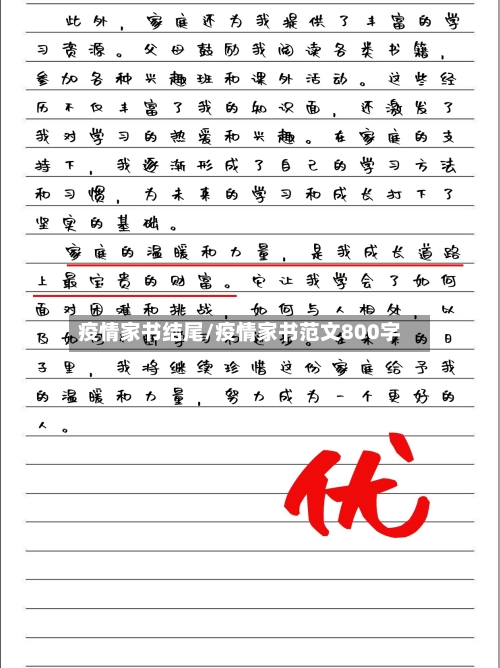 此外，家庭还为我提供了丰富的学
习资源。父母鼓励我阅读各类书籍，
参加各种兴趣班和课外活动。这些经
历不仅丰富了我的知识面，还激发了
我对学习的热爱和兴趣。在家庭的支
持下，我逐渐形成了自己的学习方法
和习惯，为未来的学习和成长打下了
坚实的基础。
家庭的温暖和力量，是我成长道路
上最宝贵的财富。它让我学会了如何
面对困难和挑战，如何与人相处，以
疫情家书结尾/疫情家书范文800字
及如何 在未来的日
子里，我将继续珍惜这份家庭给予我
的温暖和力量，努力成为一个更好的
人。
优